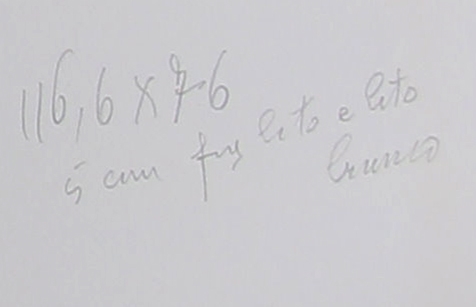 116,6 x 76
5 cm fus leto e leto
branco